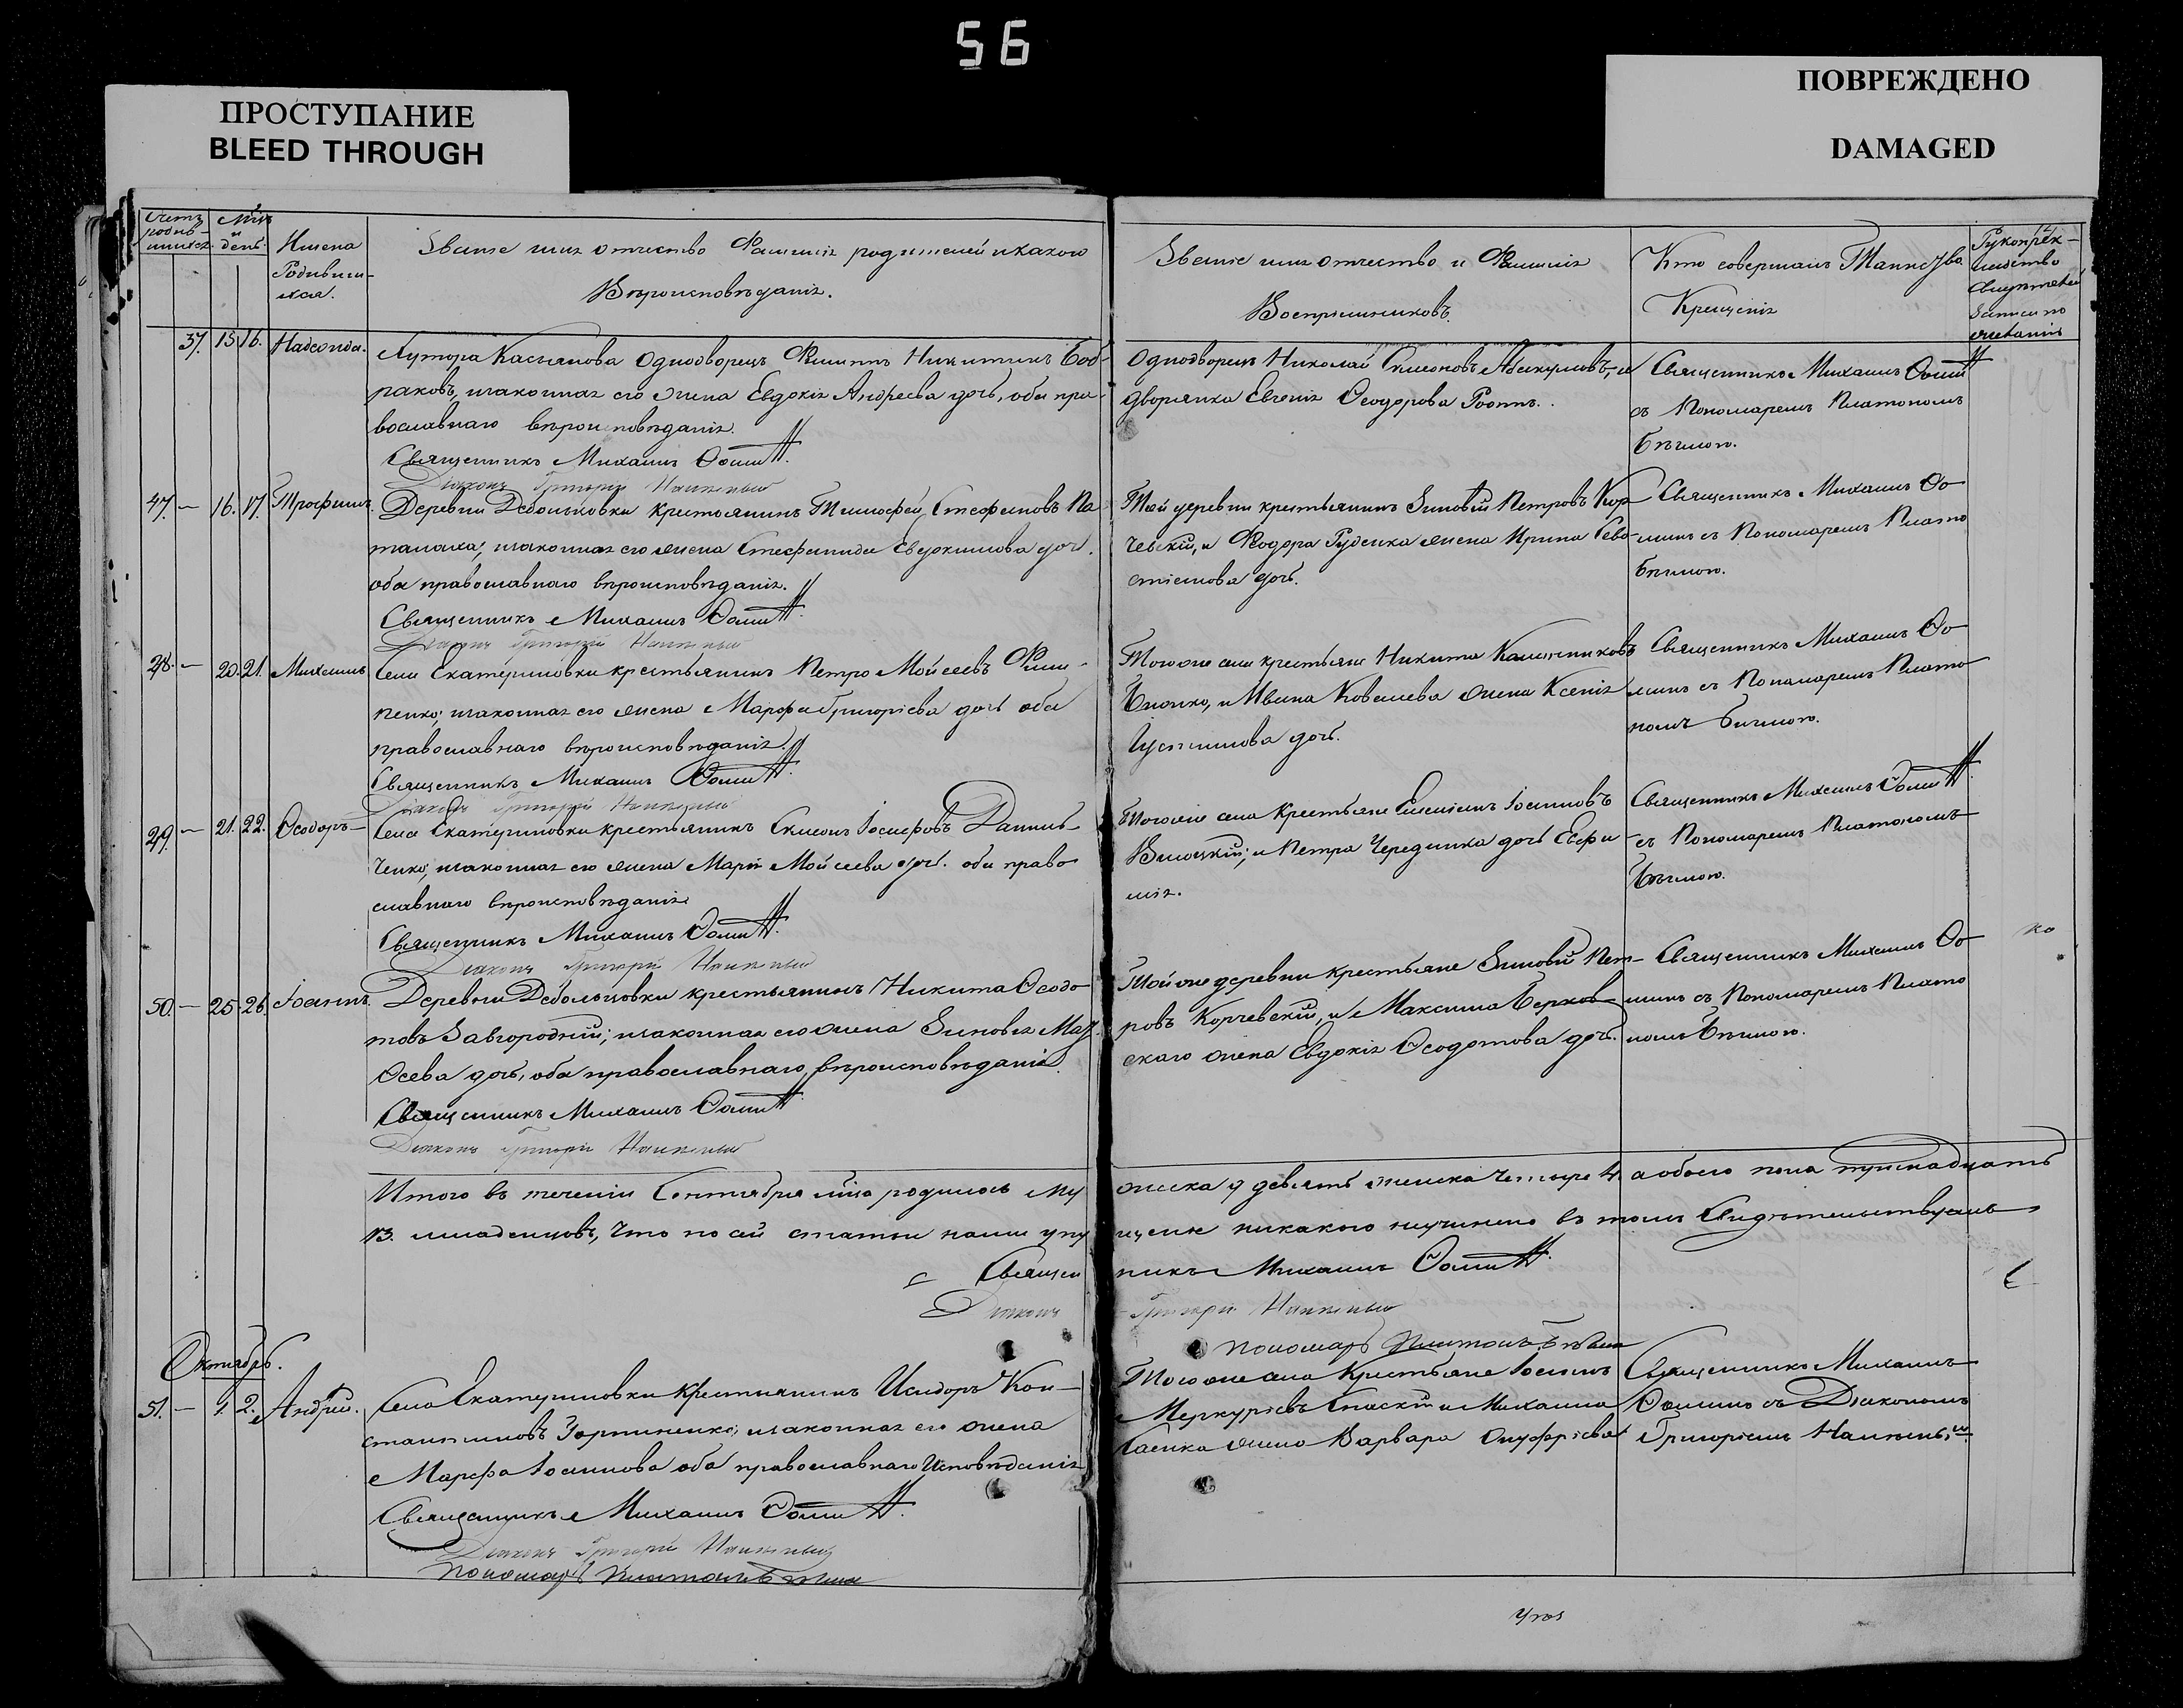 56
ПРОСТУПАНИЕ
BLEED THROUGH
ПОВРЕЖДЕНО
DAMAGED
Счетъ родив-шихся
Мѣць и день
Имена Родивши-ихся.
Званіе имя отчество Фамилія родителей и какого
Вѣроисповѣданія.
Званіе имя отчество и Фамилія
Воспріемниковъ.
Кто совершалъ Таинство
Крещенія
37. 15. 16. Надежда.
Хутора Касьянова Однодворецъ Филиппъ Никитинъ Боб-
раковъ, законная его жена Евдокія Андреева дочь, оба пра-
вославнаго вѣроисповѣданія.
Священникъ Михаилъ Ѳомин
Діаконъ Григорій
Однодворецъ Николай Симеоновъ и
дворянка Евгенія Ѳеодорова
Священникъ Михаилъ Ѳомин
съ Пономаремъ Платономъ
Бѣлымъ.
47. — 16. 17. Трофимъ.
Деревни Дебольцовки крестьянинъ Тимофей Стефановъ Па
талаха, законная его жена Стефанида Евдокимова доч.
оба православнаго вѣроисповѣданія.
Священникъ Михаилъ Ѳомин
Діаконъ Григорій
Той деревни крестьянинъ Зиновій Петровъ Кор
чевскій, и Ѳеодора Руденка жена Ирина Сева-
стіанова дочь.
Священникъ Михаилъ Ѳо
минъ съ Пономаремъ Плато
28. — 20. 21. Михаилъ
Села Екатериновки крестьянинъ Петро Мойсеевъ Фили-
пенко; законная его жена Марфа Григорієва дочь оба
православнаго вѣроисповѣданія.
Священникъ Михаилъ Ѳомин
Діаконъ Григорій
Тогоже села крестьяне Никита
и Ивана Ковалева жена Ксенія
Іустинова дочь.
Священникъ Михаилъ Ѳо
минъ съ Пономаремъ Плато
номъ
29. — 21. 22. Ѳеодоръ
Села Екатериновки крестьянинъ Симеонъ Іосифовъ Даниль-
ченко; законная его жена Марія Мойсеева дочь. оба право
славнаго вѣроисповѣданія
Священникъ Михаилъ Ѳомин
Діаконъ Григорій
Тогоже села Крестьяне Іоанновъ
и Петра Чередника дочь Евфи
мія.
Священникъ Михаилъ Ѳомин
съ Пономаремъ Платономъ
50. — 25. 26. Іоаннъ.
Деревни Дебольцовки крестьянинъ Никита Ѳеодо
товъ Завгородній; законная его жена Зиновія Моз
Ѳеева дочь, оба православнаго вѣроисповѣданія
Священникъ Михаилъ Ѳомин
Діаконъ Григорій
Тойже деревни крестьяне Зиновій Пет-
ровъ Корчевскій, и Максима Берков
скаго жена Евдокія Ѳеодотова дочь.
Священникъ Михаилъ Ѳо
минъ съ Пономаремъ Плато
номъ
Итого въ теченіи Сентября мѣца родилось му
жеска 9 девять женска четыре 4. а обоего пола тринадцать
13. младенцовъ, что по сей статьи нами упу
щенія никакого неучинено въ томъ Свидѣтельствуемъ
Священ
никъ Михаилъ Ѳомин
Діаконъ Григорій
пономарь Платонъ
Октябрь.
51. — 1. 2. Андрей.
Села Екатериновки крестьянинъ Исидоръ Кон-
стантиновъ законная его жена
Марфа Іоаннова оба православнаго Исповѣданія
Священникъ Михаилъ Ѳомин
Діаконъ Григорій
пономарь Платонъ
Тогоже села Крестьяне
Меркуріевъ и Михаила
жена Варвара Онуфріева
Священникъ Михаилъ
Ѳоминъ съ Діакономъ
Григоріемъ